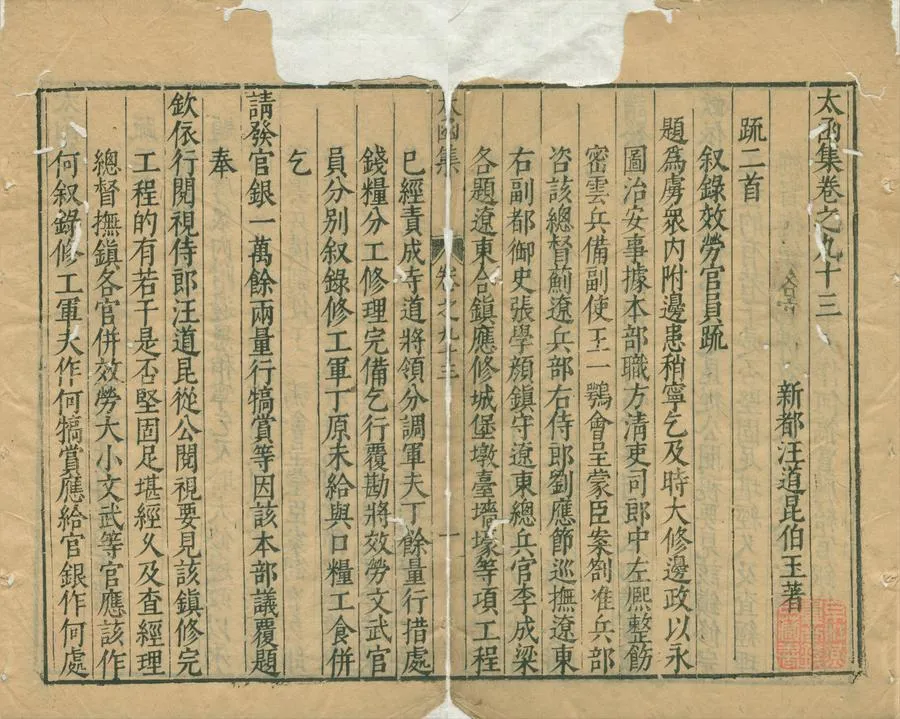 太函集卷之九十三
新都汪道昆伯玉著
疏二首
叙錄效勞官員疏
題為虜衆內附邊患稍寧乞及時大修邊政以永
圖治安事據本部職方清吏司郎中左熈整飭
密雲兵備副使王一鶚會呈蒙臣案劄准兵部
咨該總督薊遼兵部右侍郎劉應節巡撫遼東
右副都御史張學顔鎮守遼東總兵官李成梁
各題遼東合鎮應修城堡墩臺墻壕等項工程
太函集
卷之九十三
一
已經責成守道將領分調軍夫丁餘量行措處
錢糧分工修理完備乞行覆勘將效勞文武官
員分别叙錄修工軍丁原未給與口糧工食併
乞
請發官銀一萬餘兩量行犒賞等因該本部議覆題
奉
欽依行閱視侍郎汪道昆從公閱視要見該鎮修完
工程的有若干是否堅固足堪經久及査經理
總督撫鎮各官併效勞大小文武等官應該作
何叙錄修工軍夫作何犒賞應給官銀作何處